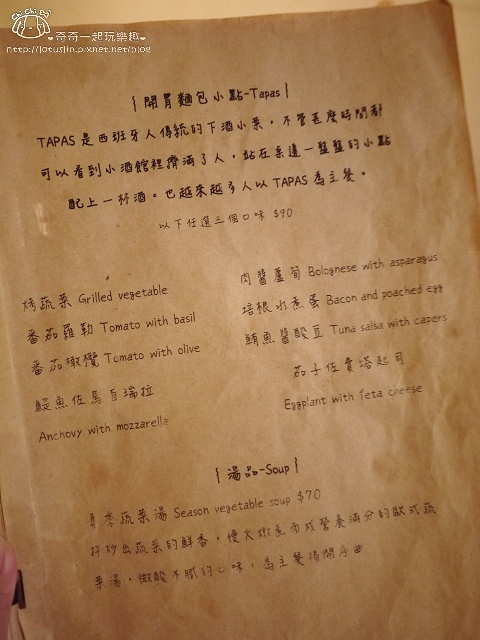 Chi Chi Bei
奇奇一起玩樂趣
http://lotuslin.pixnet.net/blog
{ 開胃麵包小點-Tapas }
TAPAS 是西班牙人傳統的下酒小菜，不管甚麼時間都
可以看到小酒館裡擠滿了人，站在桌邊一盤盤的小點
配上一杯酒。也越來越多人以 TAPAS 為主餐。
以下任選三個口味 $90
烤蔬菜 Grilled vegetable
番茄羅勒 Tomato with basil
番茄橄欖 Tomato with olive
鯷魚佐馬自瑞拉
Anchovy with mozzarella
肉醬蘆筍 Bolognese with asparagus
培根水煮蛋 Bacon and poached egg
鮪魚醬酸豆 Tuna salsa with capers
茄子佐費塔起司
Eggplant with feta cheese
{ 湯品-Soup }
身季蔬菜湯 Season vegetable soup $70
拌炒出蔬菜的鮮香，慢火燉煮而成營養滿分的歐式蔬
菜湯，微酸不膩的口味，為主餐揭開序曲